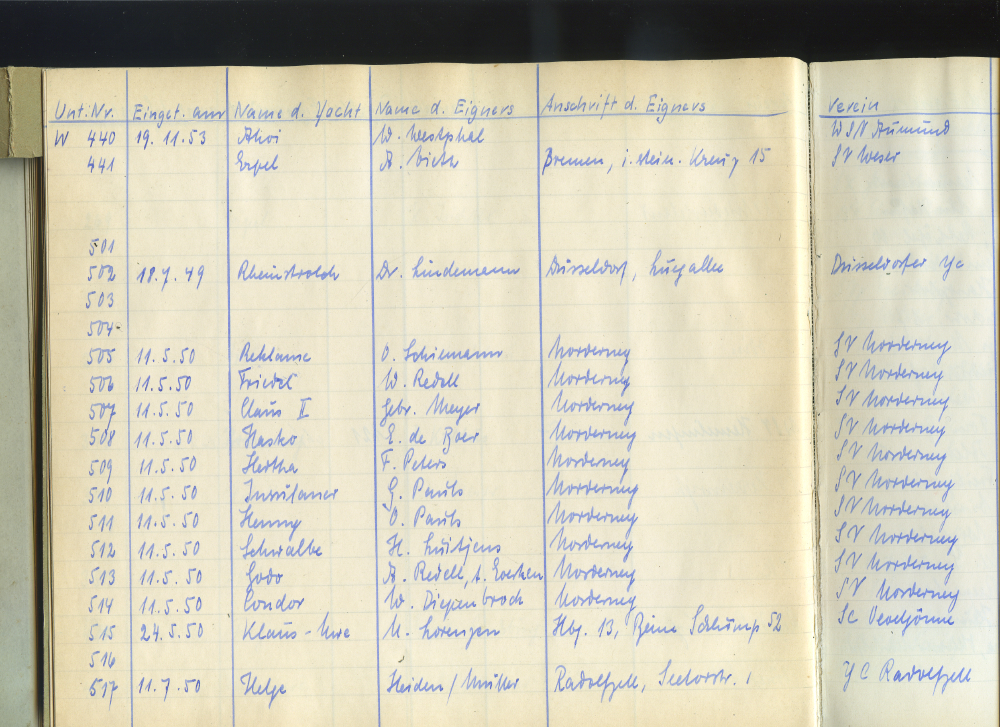 Unt. Nr. Einget. am Name d. Yacht Name d. Eigners Anschrift d. Eigners Verein
W 440 19.11.53 Ahoi W. Westphal WSV Aumund
441 Erpel A. Bremen, i. stein. Kreuz 15 SV Weser
501
502 18.7.49 Dr. Lindemann Düsseldorf, Luegallee Düsseldorfer YC
503
504
505 11.5.50 Reklame O. Schiemann Norderney SV Norderney
506 11.5.50 Friedel W. Redell Norderney SV Norderney
507 11.5.50 Claus II Gebr. Meyer Norderney SV Norderney
508 11.5.50 Hasko E. de Boer Norderney SV Norderney
509 11.5.50 Hertha F. Peters Norderney SV Norderney
510 11.5.50 Insulaner G. Pauls Norderney SV Norderney
511 11.5.50 Henny O. Pauls Norderney SV Norderney
512 11.5.50 Schwalbe H. Luitjens Norderney SV Norderney
513 11.5.50 Godo A. Redell, Norderney SV Norderney
514 11.5.50 Condor W. Norderney SV Norderney
515 24.5.50 Klaus-Uwe U. Lorenzen Hbg. 13, Beim Schlump 52 SC
516
517 11.7.50 Helge Heiden/Müller Radolfzell, Seetorstr. 1 YC Radolfzell